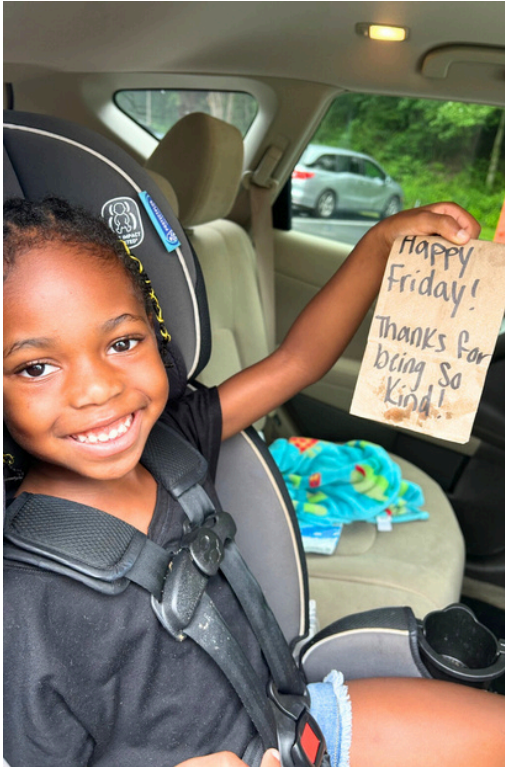 Happy
Friday!
Thanks for
being so
kind!